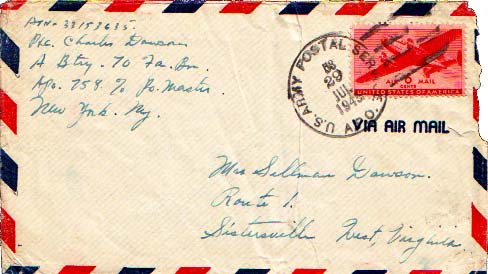 ASN- 38157635.
Pvt. Charles Dawson
A Btry. 70 Fa. Bn.
Apo. 758. % Po. Master.
New York. Ny.
U.S. ARMY POSTAL SERVICE
29
JUL
1945
A.P.O.
AIR MAIL
6 CENTS
UNITED STATES OF AMERICA
VIA AIR MAIL
Mrs Sillman Dawson.
Route 1.
Sistersville West, Virginia.